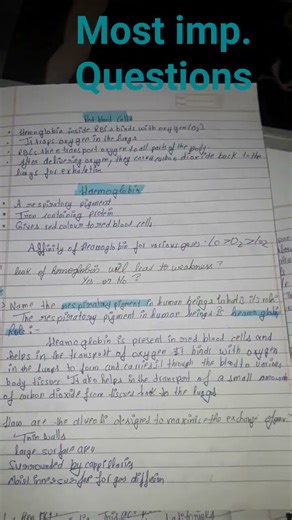 Most imp.
Questions
Red blood Cells
• Hemoglobin inside RBCs binds with oxygen (O2)
• It traps oxygen in the lungs
• RBCs then transport oxygen to all parts of the body
• After delivering oxygen, they carry carbon dioxide back to the
lungs for exhalation
Haemoglobin
• A respiratory pigment
• Iron containing protein
• Gives red colour to red blood cells
Affinity of Haemoglobin for various gases: CO > O2 > CO2
Lack of hemoglobin will lead to weakness?
Yes or No?
Name the respiratory pigment in human beings its role
The respiratory pigment in human beings is
Role:-
Heamoglobin is present in red blood cells and
helps in the transport of oxygen It binds with oxygen
in the lungs to form and carries it through the blood to various
body tissues. It also helps in the transport of a small amounts
of carbon dioxide from tissues to the lungs
How are the alveoli designs to maximise the exchange of gases?
Thin walls
large surface area
Surrounded by cappilaries
Moist inner surface for gas diffusion